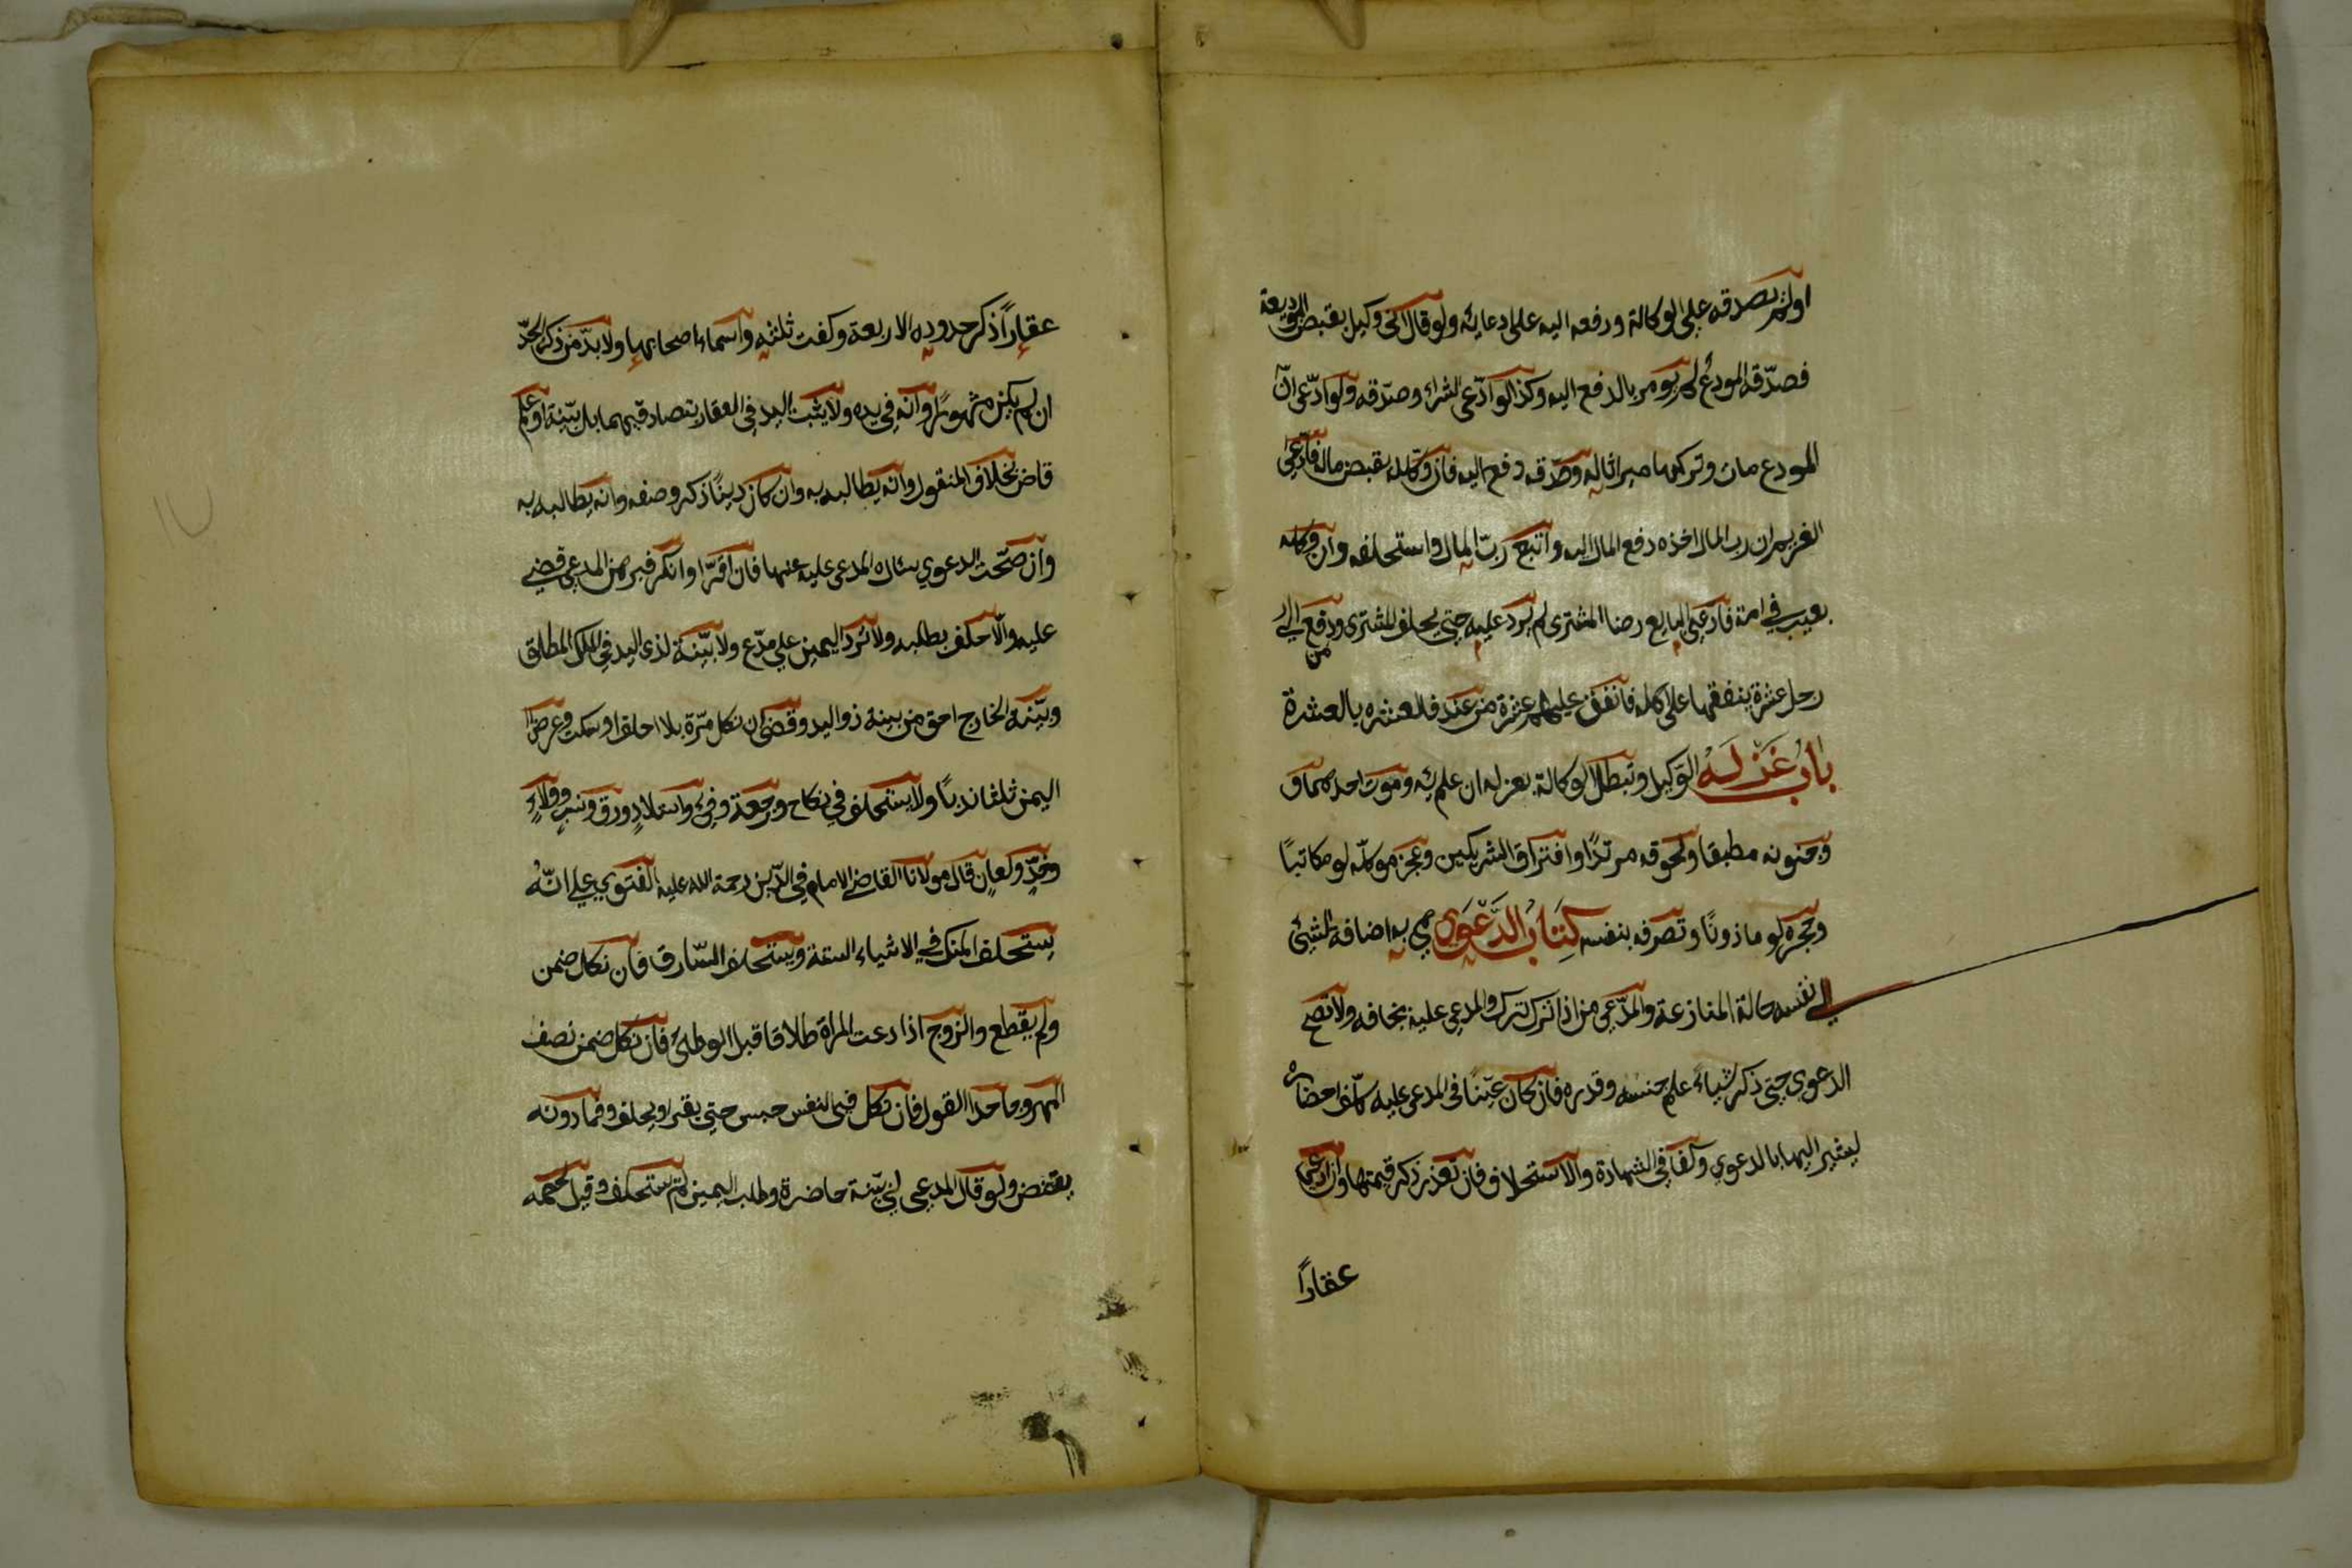 اولم يصدقه على الوكالة ودفعه اليه على ادعائه ولو قال انى وكيل بقبض الوديعة
فصدّقه المودع لم يومر بالدفع اليه وكذا لو ادّعى الشراء وصدّقه ولو ادّعى انّ
المودع مات وتركها ميراثا له وصدّقه دفع اليه فان وكّله بقبض ماله فادّعى
الغريم ان رب المال اخذه دفع المال اليه واتبع ربّ المال واستحلفه وان وكله
بعيب في امة فادعى البايع رضا المشترى لم يرد عليه حتى يحلف المشترى ومن دفع الى
رجل عشرة ينفقها على اهله فانفق عليهم عشرة من عنده فالعشره بالعشرة
باب عَزْلِهِ الوكيل وتبطل الوكالة بعزله ان علم به وموت احدهما و
وجنونه مطبقا ولحوقه مرتدًا وافتراق الشريكين وعجز موكلّه لو مكاتبًا
وحجره لو ماذونًا وتصرفه بنفسه كِتَابُ الدَّعْوَي هي اضافة الشيئ
الى نفسه حالة المنازعة والمدّعي من اذا ترك ترك والمدعي عليه بخلافه ولا تصح
الدعوى حتى ذكر شياءً علم جنسه وقدره فان كان عيّنًا في المدعى عليه كلّف احضاره
ليشير اليها بالدعوي وكذا في الشهادة والاستحلاف فان تعذر ذكر قيمتها وان ادعى
عقاراً
عقاراً ذكر حدوده الاربعة وكفت ثلثه واسماء اصحابها ولا بدّ من ذكر الجدّ
ان لم يكن مشهورًا وانه في يده ولا يثبت اليد في العقار بتصادقهما بل ببّينة او علم
قاض بخلاف المنقول وانه يطالبه به وان كان دينًا ذكر وصفه وانه يطالبه به
وان صحّت الدعوي سئال المدعى عليه عنها فان اقرّا او انكر فبرهن المدعي قضي
عليه والّا حلف بطلبه ولا تُردّ اليمين على مدّع ولا بيّنة لذى اليد في الملك المطلق
وبيّنة الخارج احق من بينة ذو اليد وقضى ان نكل مرّة بلا احلف او سكت وعرض
اليمين ثلثا ندبًا ولا يستحلف في نكاح ورجعة وفئ واستيلادٍ ورق ونسبٍ وولاءٍ
وحدٍّ ولعانٍ قال مولانا القاضي الامام فخر الدّين رحمة الله عليه الفتوي على انّهُ
يستحلف المنكر في الاشياء الستة ويستحلف السّارق فان نكل ضمن
ولم يقطع والزوج اذا دعت المراة طلاقا قبل الوطئ فان نكل ضمن نصف
المهر وجاحد القول فان نكل في النفس حبس حتى يقر او يحلف وفيما دونه
يقتص ولو قال المدعي لي بيّنة حاضرة وطلب اليمين لم يستحلف وقيل لخصمه